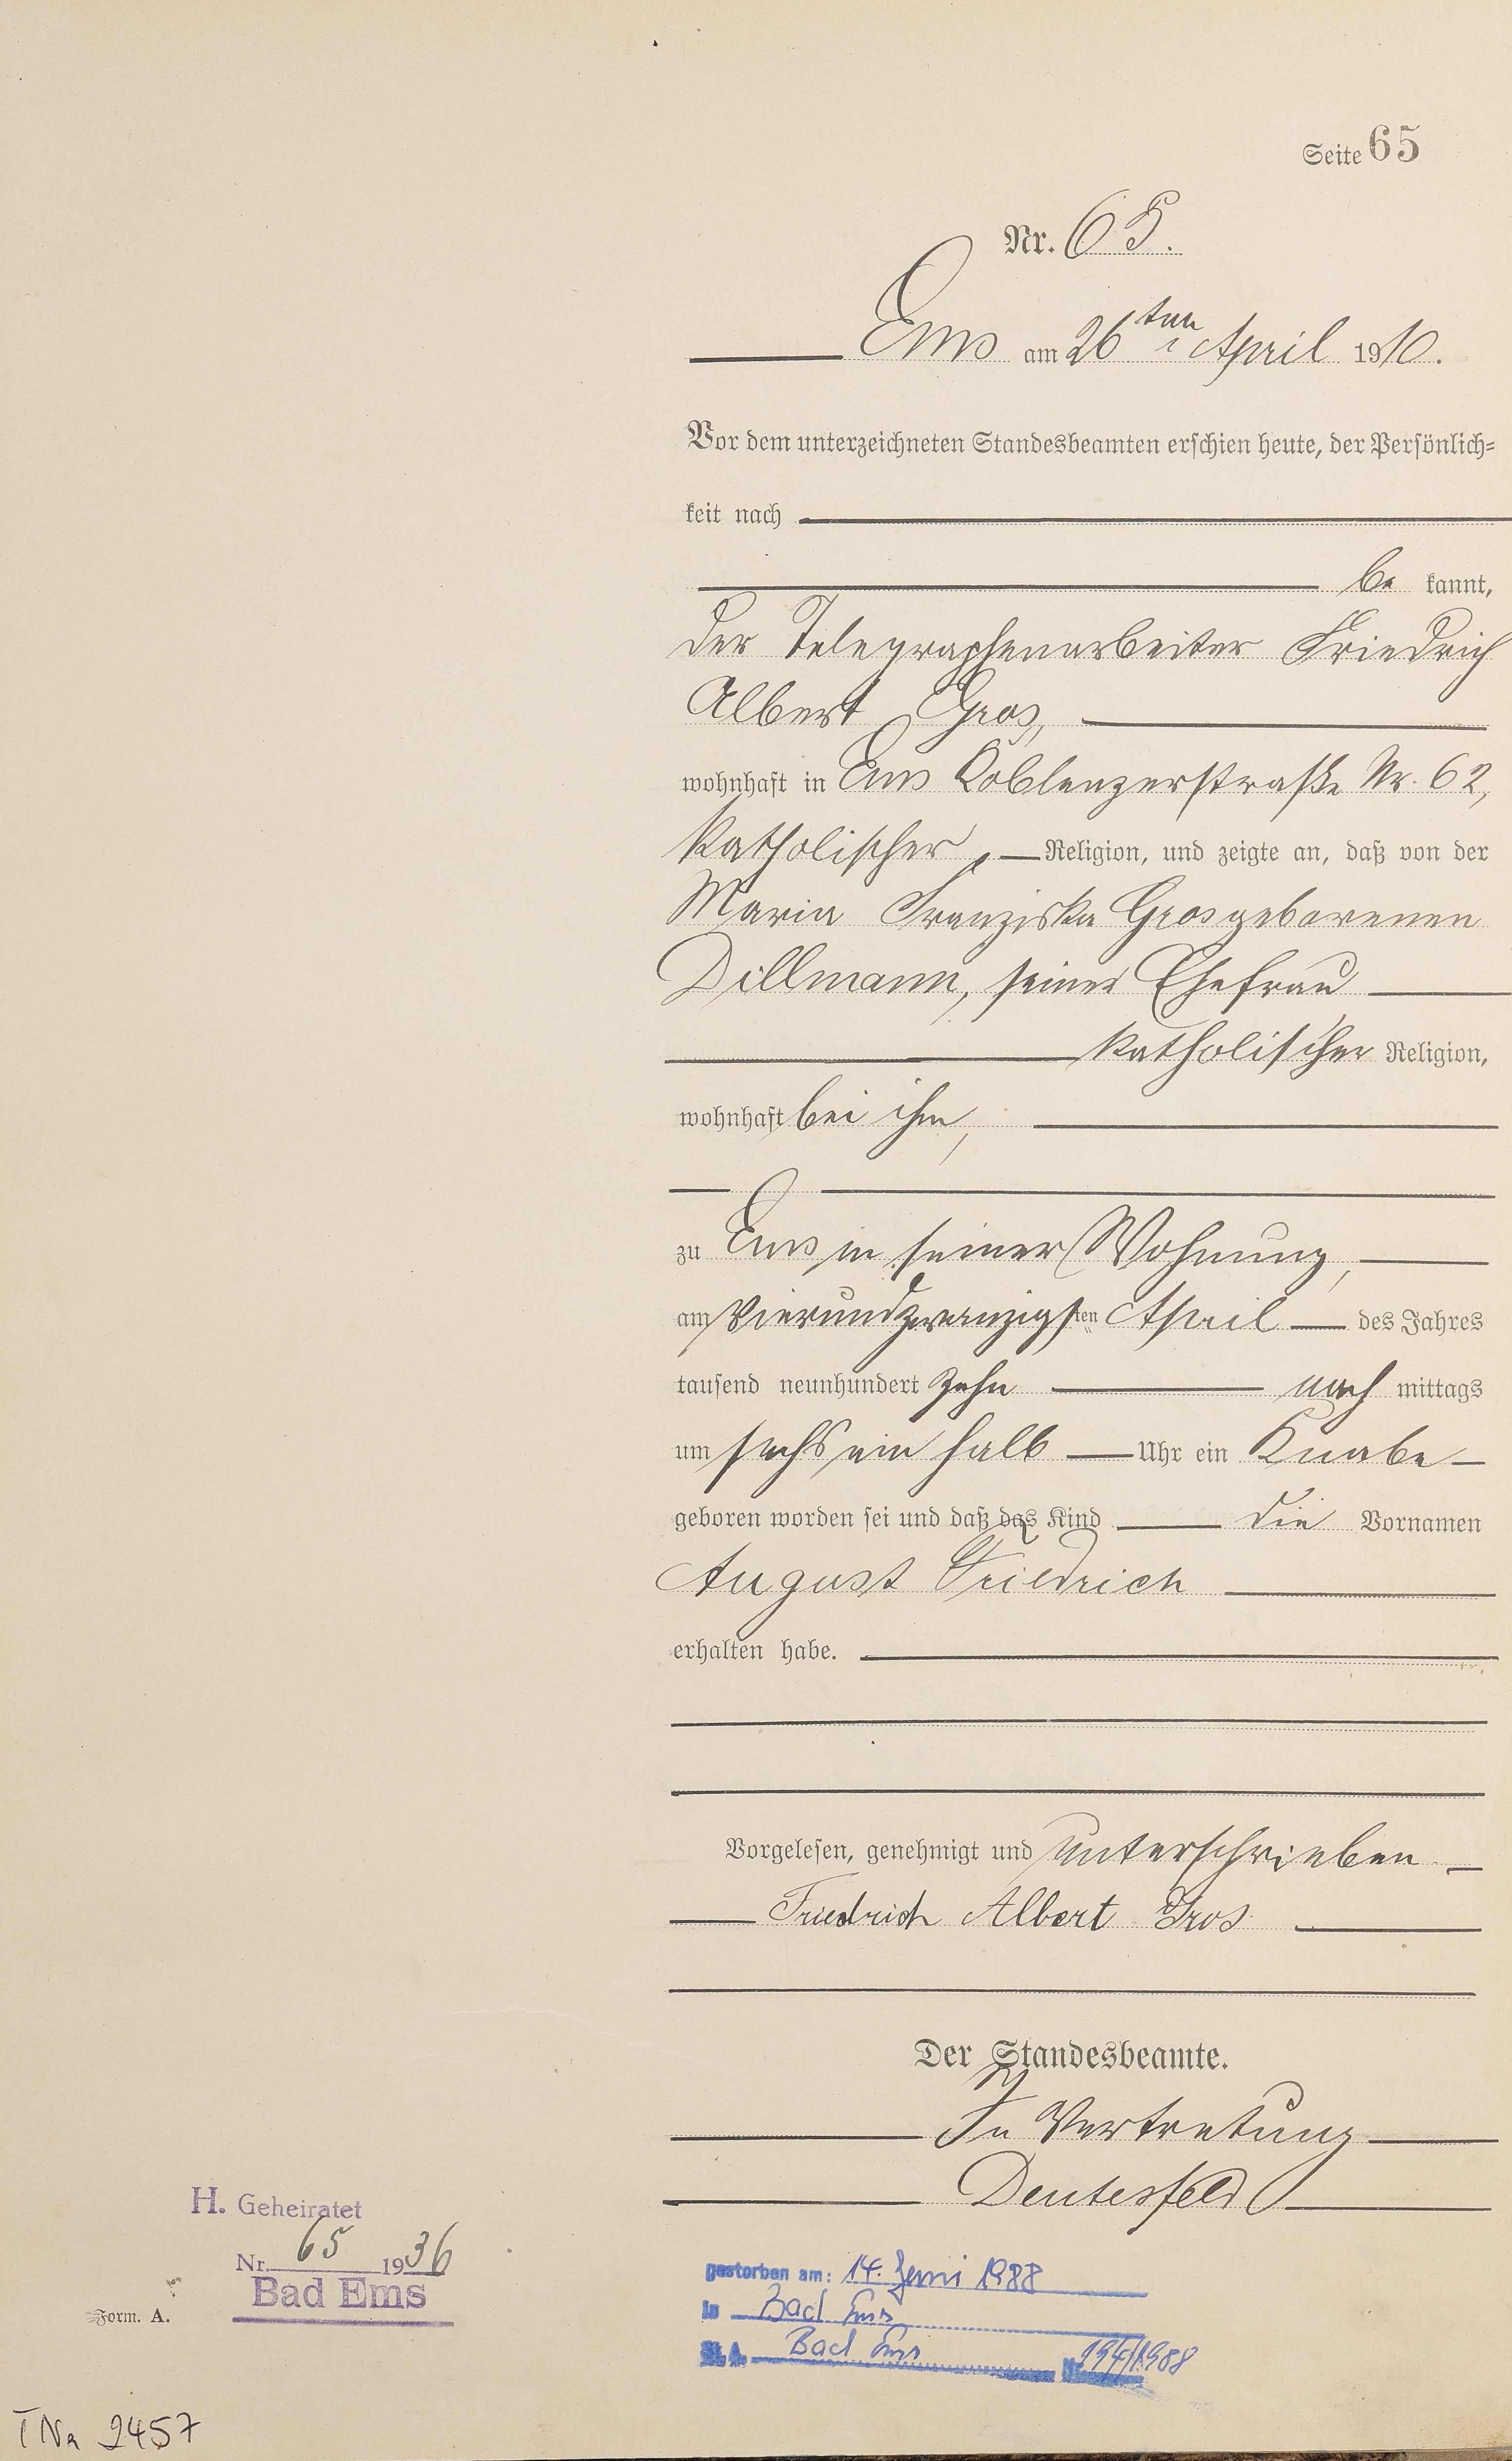 Seite 65
Nr. 65.
Ems am 26ten April 1910.
Vor dem unterzeichneten Standesbeamten erschien heute, der Persönlich=
keit nach
be kannt,
der Telegraphenarbeiter Friedrich
Albert Gros,
wohnhaft in Ems Koblenzerstraße Nr. 62,
katholischer Religion, und zeigte an, daß von der
Maria Franziska Gros geborenen
Dillmann, seiner Ehefrau
katholischer Religion,
wohnhaft bei ihm,
zu Ems in seiner Wohnung,
am vierundzwanzigsten April des Jahres
tausend neunhundert zehn nach mittags
um sechs ein halb Uhr ein Knabe
geboren worden sei und daß das Kind die Vornamen
August Friedrich
erhalten habe.
Vorgelesen, genehmigt und unterschrieben
Friedrich Albert Gros
Der Standesbeamte.
In Vertretung
Deutesfeld
H. Geheiratet
Nr. 65 1936
Bad Ems
Form. A.
gestorben am: 14. Juni 1988
in Bad Ems
St. A. Bad Ems Nr. /1988
TNr 2457